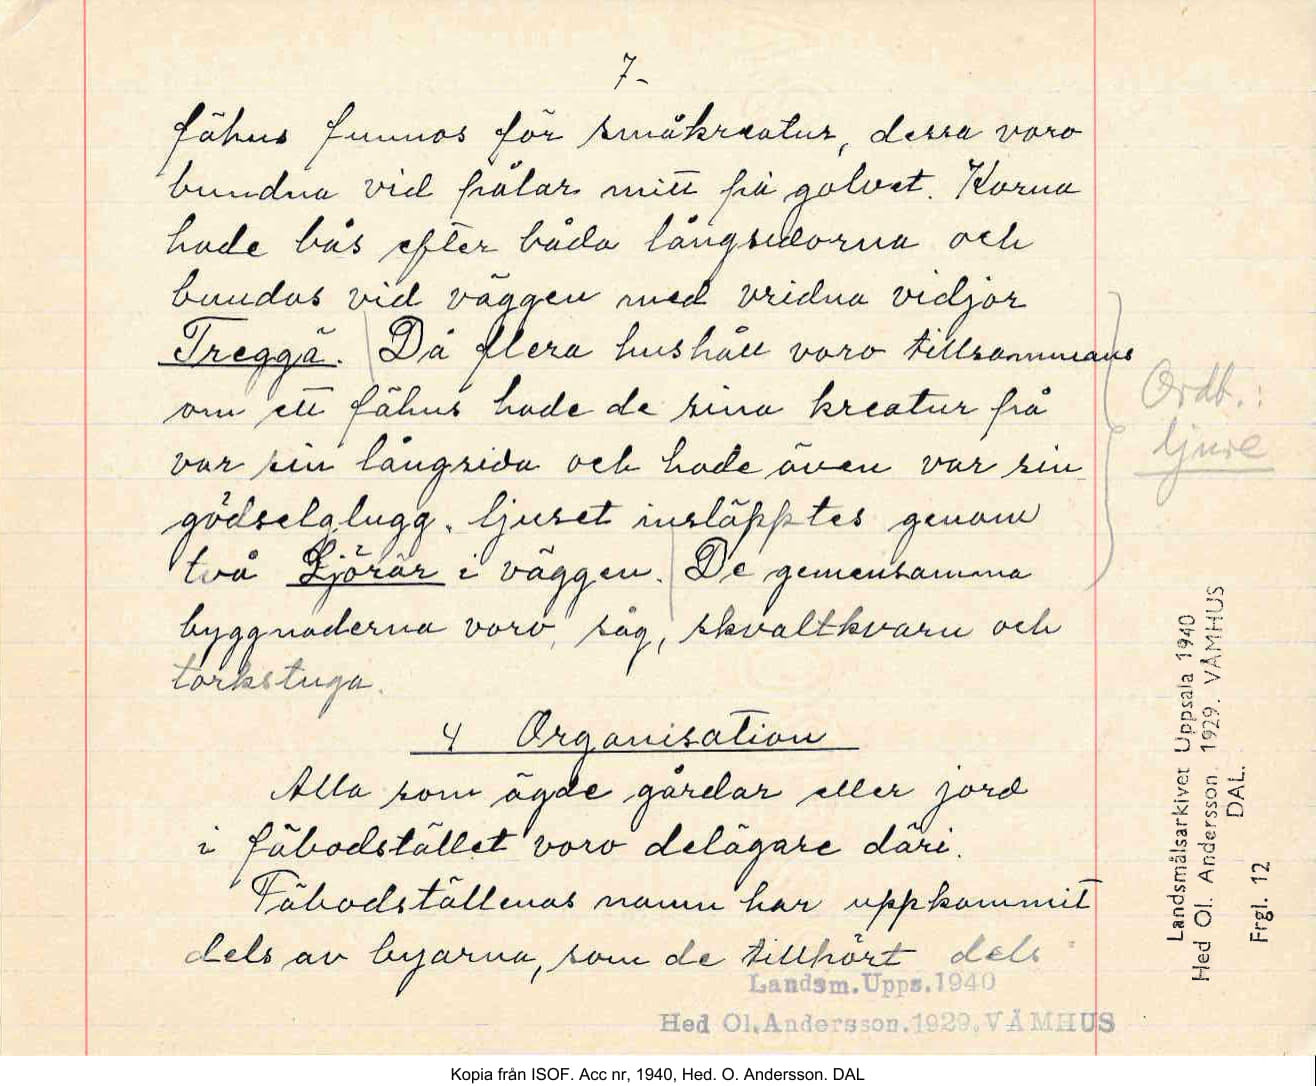 7-
fähus funnos för småkreatur, dessa voro
bundna vid pålar mitt på golvet. Korna
hade bås efter båda långsidorna och
bundos vid väggen med vridna vidjor
Treggä. Då flera hushåll voro tillsammans
om ett fähus hade de sina kreatur på
var sin långsida och hade även var sin
gödselglugg. ljuset insläpptes genom
två Ljörär i väggen. De gemensamma
byggnaderna voro, såg, skvaltkvarn och
torkstuga.
4 Organisation
Alla som ägde gårdar eller jord
i fäbodstället voro delägare däri.
Fäbodställenas namn har uppkommit
dels av byarna, som de tillhört dels
Ordb.:
ljure
Landsmålsarkivet Uppsala 1940
Hed Ol. Andersson. 1929. VÅMHUS
DAL.
Frgl. 12
Landsm.Upps.1940
Hed Ol.Andersson.1929.VÅMHUS
Kopia från ISOF. Acc nr, 1940, Hed. O. Andersson. DAL